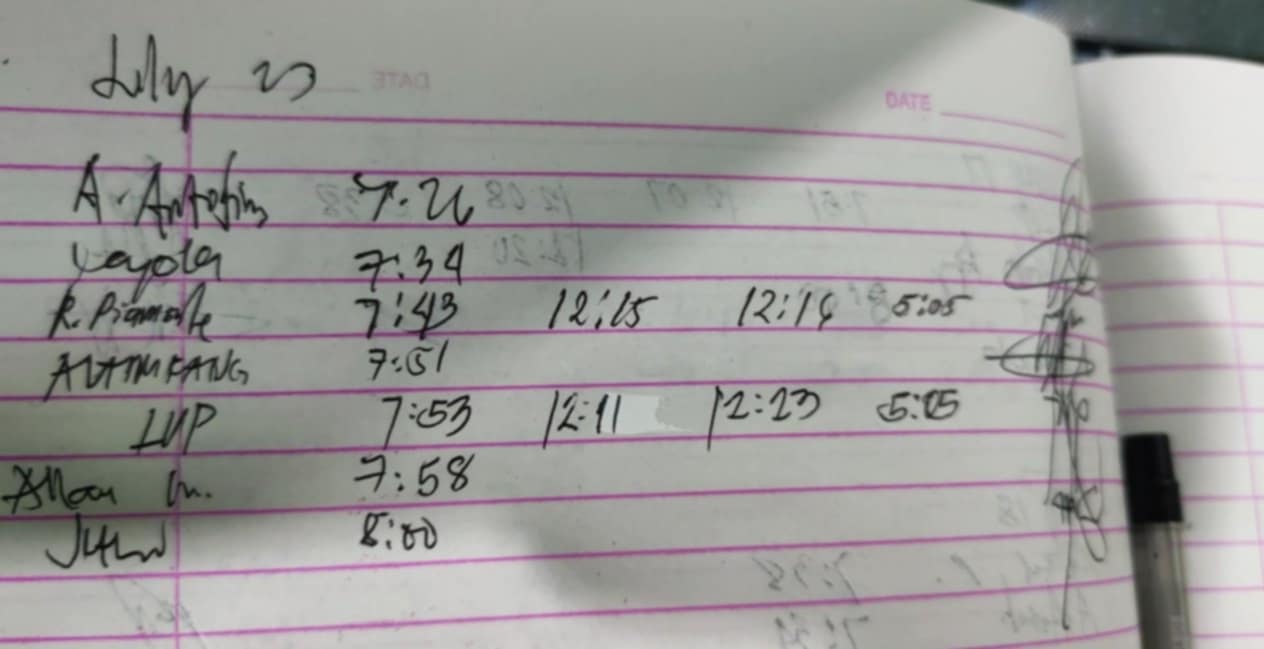 July 23
DATE
7:26
Loyola 7:34
R. Piamonte 7:43 12:15 12:16 5:05
7:51
LVP 7:53 12:11 12:23 5:05
Allan m. 7:58
8:00